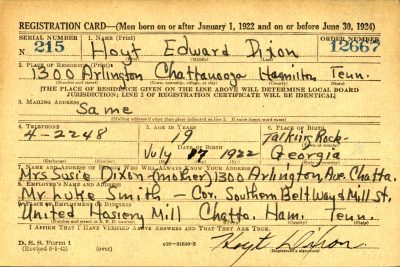 REGISTRATION CARD—(Men born on or after January 1, 1922 and on or before June 30, 1924)
SERIAL NUMBER 1. NAME (Print) ORDER NUMBER
N 215 Hoyt Edward Dixon 12667
(First) (Middle) (Last)
2. PLACE OF RESIDENCE (Print)
1300 Arlington Chattanooga Hamilton Tenn.
(Number and street) (Town, township, village, or city) (County) (State)
[THE PLACE OF RESIDENCE GIVEN ON THE LINE ABOVE WILL DETERMINE LOCAL BOARD
JURISDICTION; LINE 2 OF REGISTRATION CERTIFICATE WILL BE IDENTICAL]
3. MAILING ADDRESS
Same
[Mailing address if other than place indicated on line 2. If same insert word same]
4. TELEPHONE 5. AGE IN YEARS 6. PLACE OF BIRTH
4-2248 19 Talking Rock-
DATE OF BIRTH (Town or county)
July 17 1922 Georgia
(Exchange) (Number) (Mo.) (Day) (Yr.) (State or country)
7. NAME AND ADDRESS OF PERSON WHO WILL ALWAYS KNOW YOUR ADDRESS
Mrs Susie Dixon (mother) 1300 Arlington Ave. Chatta.
8. EMPLOYER'S NAME AND ADDRESS
Mr Luke Smith - Cor. Southern Belt Way & Mill St.
9. PLACE OF EMPLOYMENT OR BUSINESS
United Hosiery Mill Chatta. Ham. Tenn.
(Number and street or R. F. D. number) (Town) (County) (State)
I AFFIRM THAT I HAVE VERIFIED ABOVE ANSWERS AND THAT THEY ARE TRUE.
D. S. S. Form 1
(Revised 6-9-41) (over) 16—21630-2 Hoyt Dixon
(Registrant's signature)